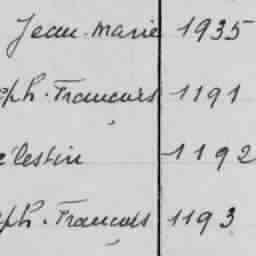 Jean-Marie 1935
eph-Francois 1191
élestin 1192
eph-Francois 1193